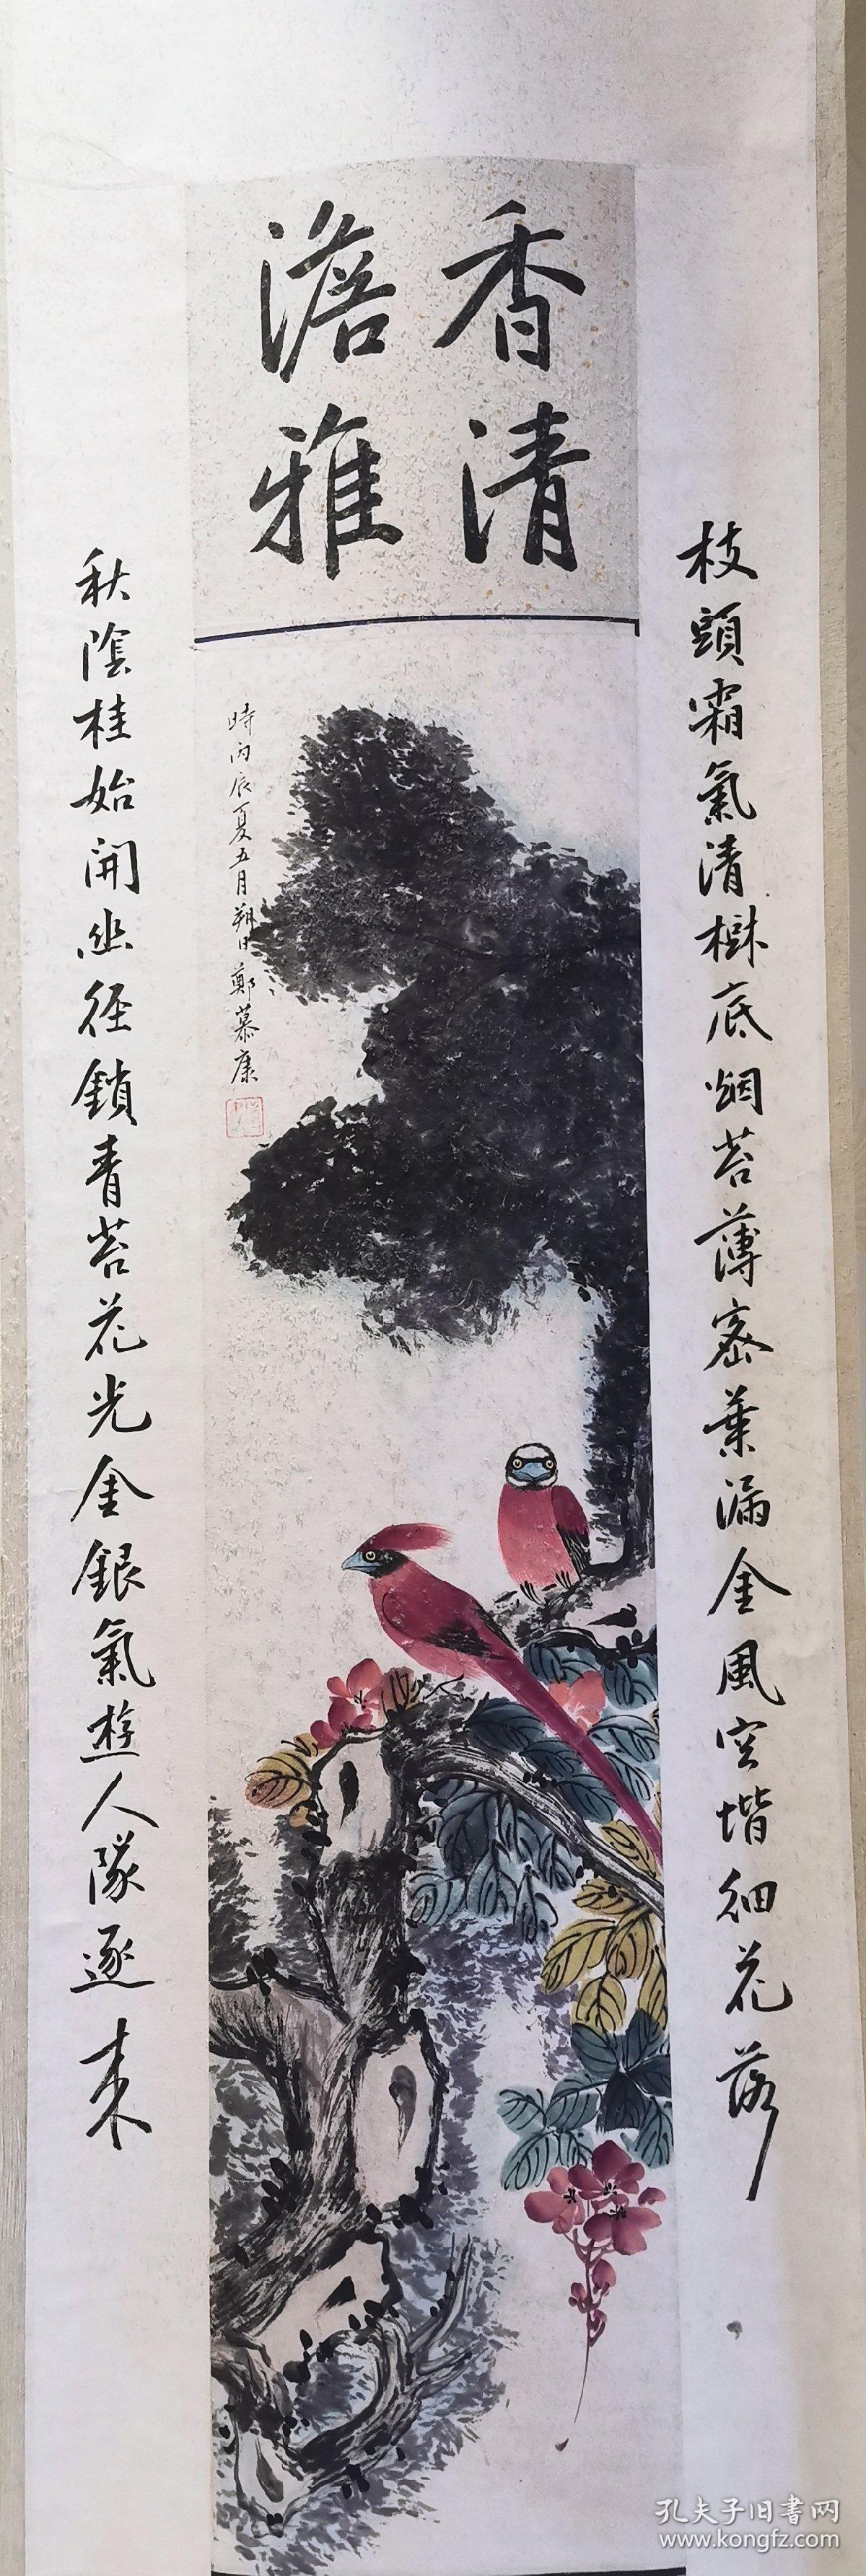 香清
澹雅
枝頭霜氣清樹底烟苔薄密葉漏金風空堦細花落
秋陰桂始開幽徑鎖青苔花光金銀氣遊人隊逐来
時丙辰夏五月朔日鄭慕康
孔夫子旧書网
www.kongfz.com